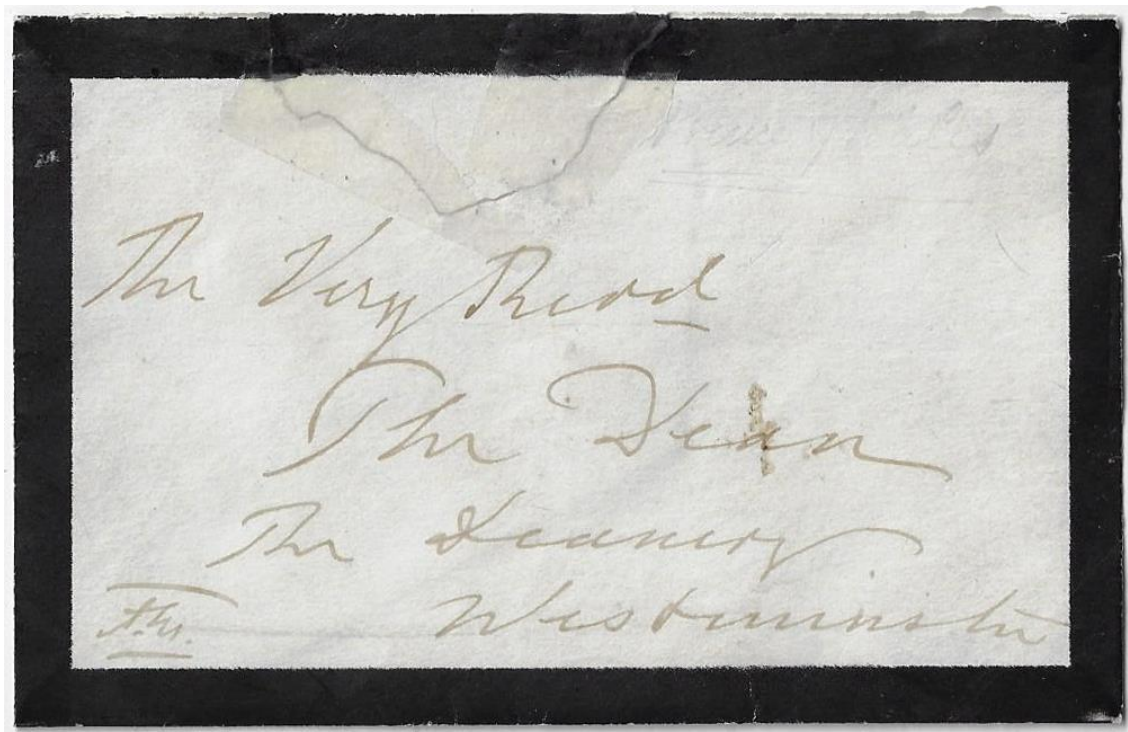 The Very Revd
The Dean
The Deanery
Westminster